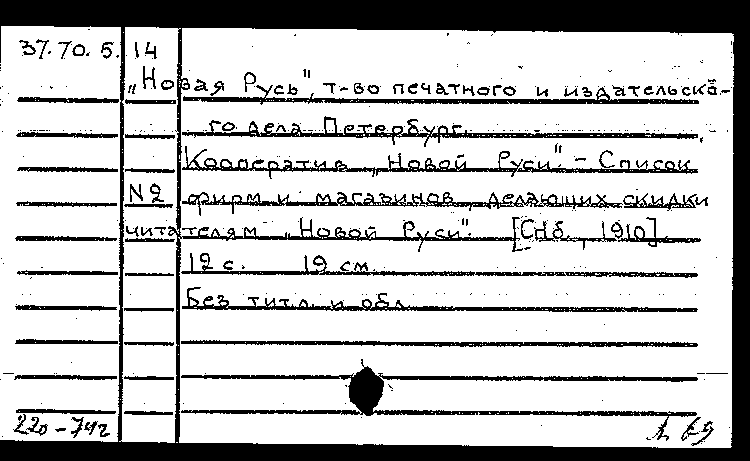 37.70.5.14
„Новая Русь", т-во печатного и издательска-
го дела. Петербург.
Кооператив „Новой Руси". - Список
№2 фирм и магазинов, делающих скидки
читателям „Новой Руси". [СПб., 1910].
12 с. 19 см.
Без тит. л. и обл.
220-74г
69